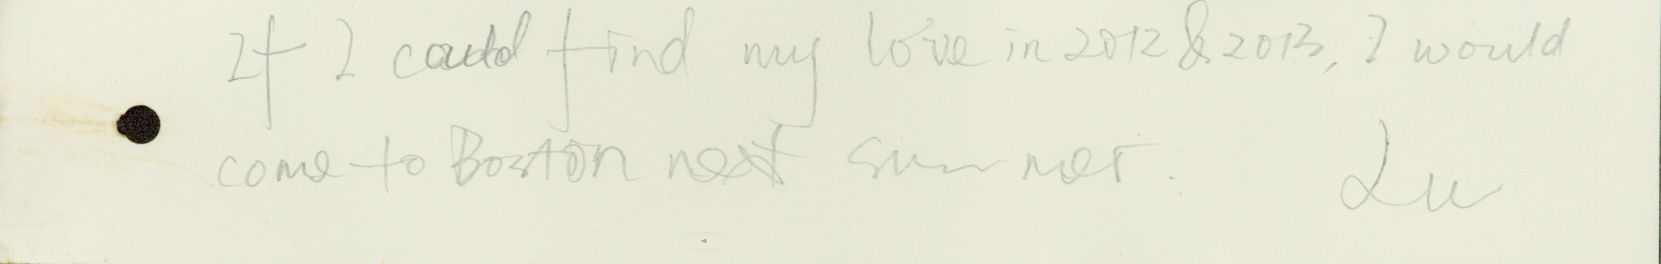 If I could find my love in 2012 & 2013, I would
come to Boston next summer. Lu